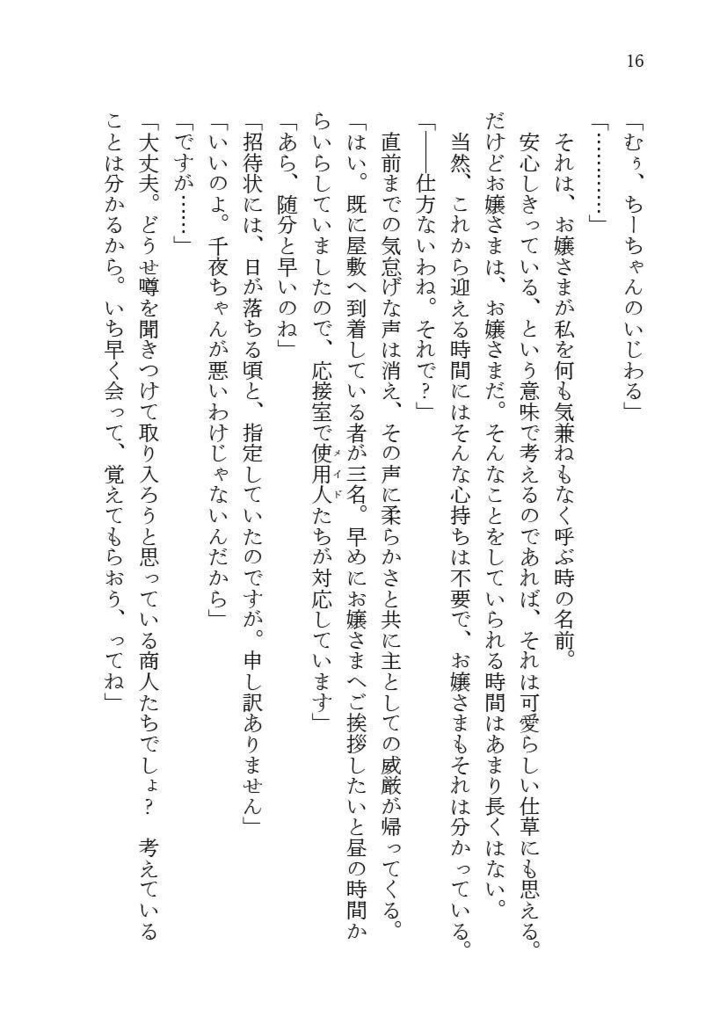 16
「むぅ、ちーちゃんのいじわる」
「…………」
それは、お嬢さまが私を何も気兼ねもなく呼ぶ時の名前。
安心しきっている、という意味で考えるのであれば、それは可愛らしい仕草にも思える。
だけどお嬢さまは、お嬢さまだ。そんなことをしていられる時間はあまり長くはない。
当然、これから迎える時間にはそんな心持ちは不要で、お嬢さまもそれは分かっている。
「――仕方ないわね。それで?」
直前までの気怠げな声は消え、その声に柔らかさと共に主としての威厳が帰ってくる。
「はい。既に屋敷へ到着している者が三名。早めにお嬢さまへご挨拶したいと昼の時間か
らいらしていましたので、応接室で使用人メイドたちが対応しています」
「あら、随分と早いのね」
「招待状には、日が落ちる頃と、指定していたのですが。申し訳ありません」
「いいのよ。千夜ちゃんが悪いわけじゃないんだから」
「ですが……」
「大丈夫。どうせ噂を聞きつけて取り入ろうと思っている商人たちでしょ?　考えている
ことは分かるから。いち早く会って、覚えてもらおう、ってね」